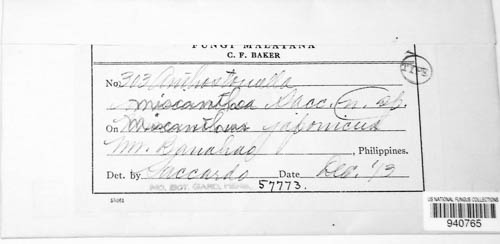 FUNGI MALAYANA
C. F. BAKER
No. 303 Anthostomella
miscanthea Sacc. n. sp.
On Miscanthus japonicus
Mt. Banahao, Philippines.
Det. by Saccardo Date Dec. '13
MO. BOT. GARD. HERB. 57773.
US NATIONAL FUNGUS COLLECTIONS
940765